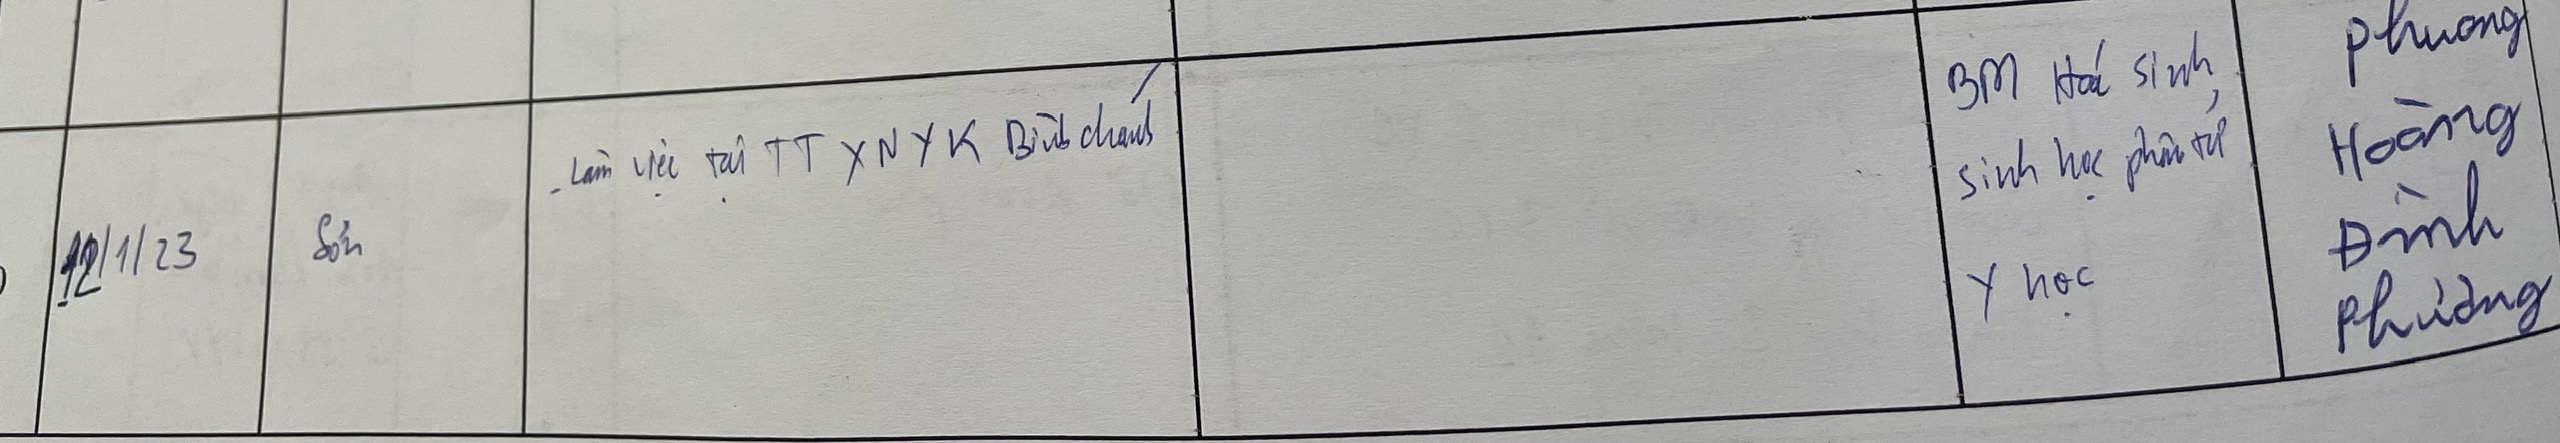 12/1/23
Sơn
- Làm việc tại TT XNYK Bình Chánh
BM Hoá sinh,
sinh học phân tử
Y học
Phương
Hoàng
Đình
Phường